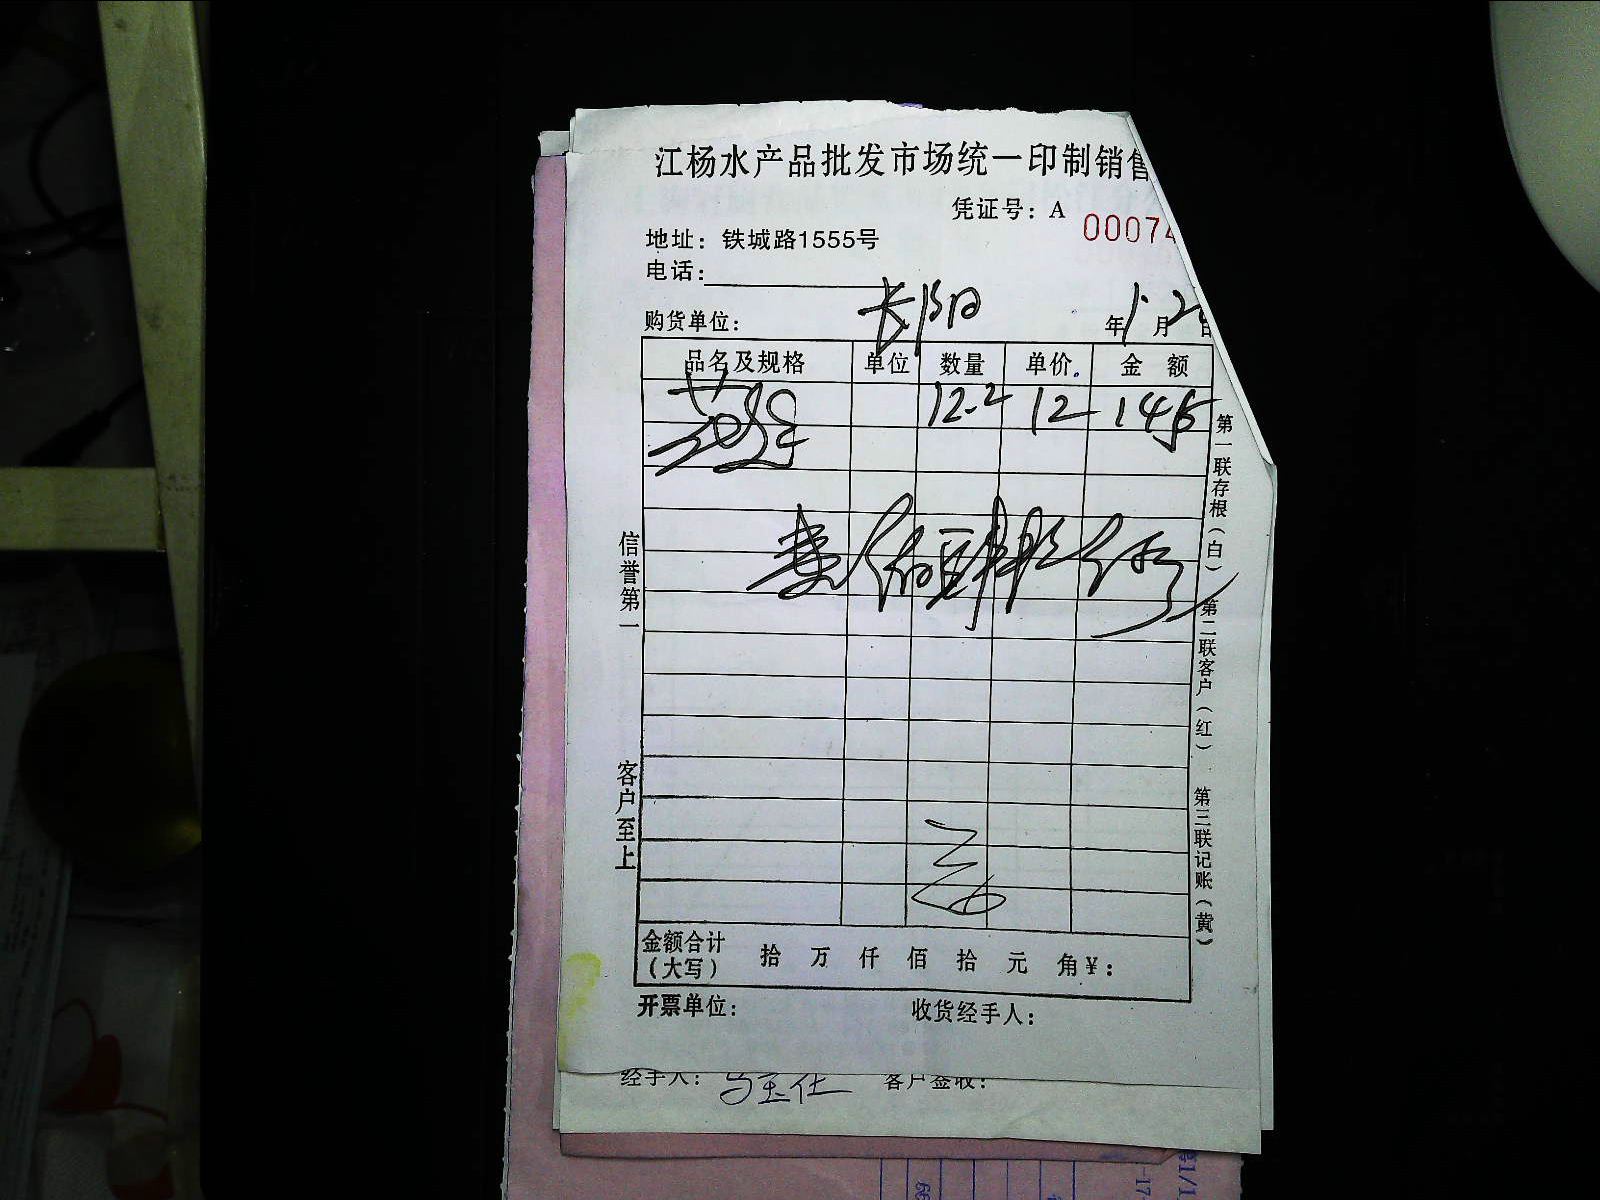 江杨水产品批发市场统一印制销售
凭证号：A 00074
地址：铁城路1555号
电话：
购货单位： 长阳 年 1. 月 2 日
品名及规格 单位 数量 单价 金 额
12.2 12 145
信誉第一
客户至上
第一联存根（白） 第二联客户（红） 第三联记账（黄）
金额合计（大写） 拾 万 仟 佰 拾 元 角 ¥：
开票单位： 收货经手人：
经手人： 客户签收：